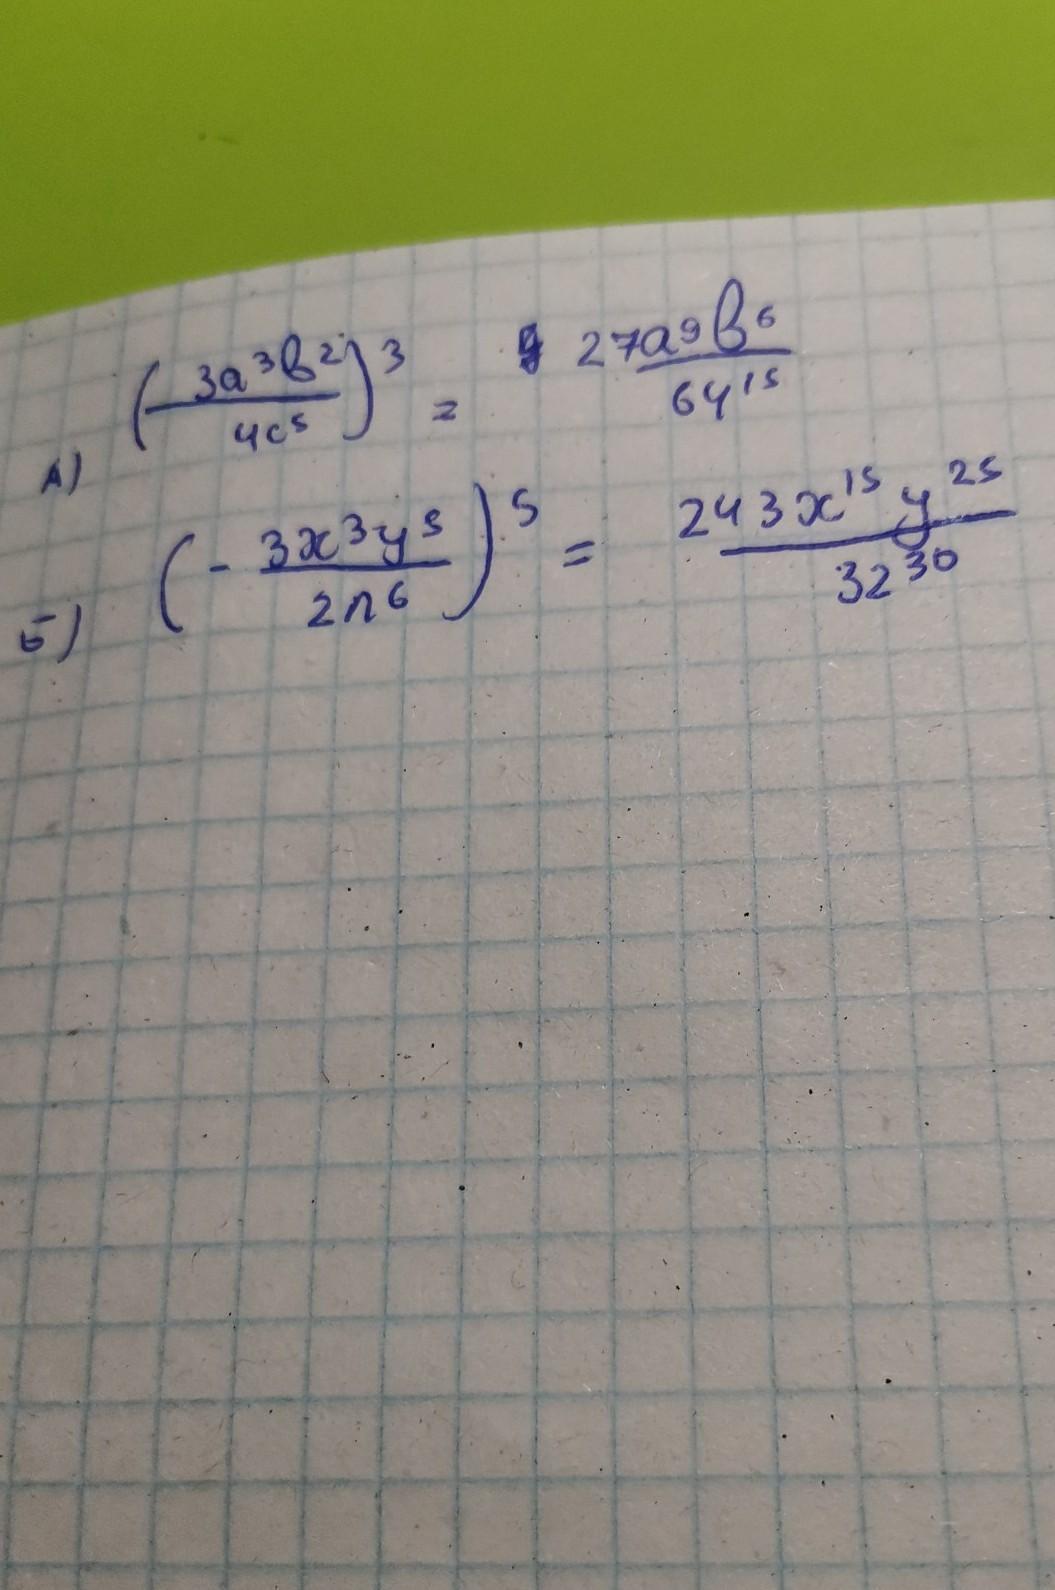 А) (3a³b²/4c⁵)³ = 27a⁹b⁶/64¹⁵
Б) (-3x³y⁵/2n⁶)⁵ = 243x¹⁵y²⁵/32³⁰